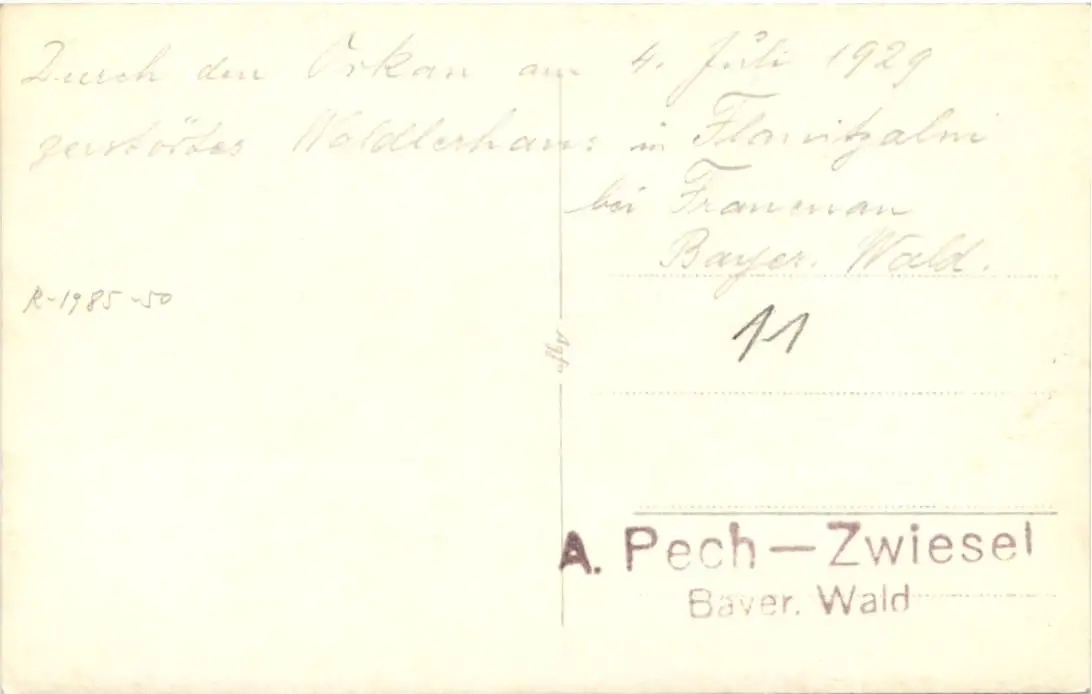 Durch den Orkan am 4. Juli 1929
zerstörtes Waldlerhaus in Flanitzalm
bei Frauenau
Bayer. Wald.
R-1985-50
11
Agfa
A. Pech — Zwiesel
Bayer. Wald